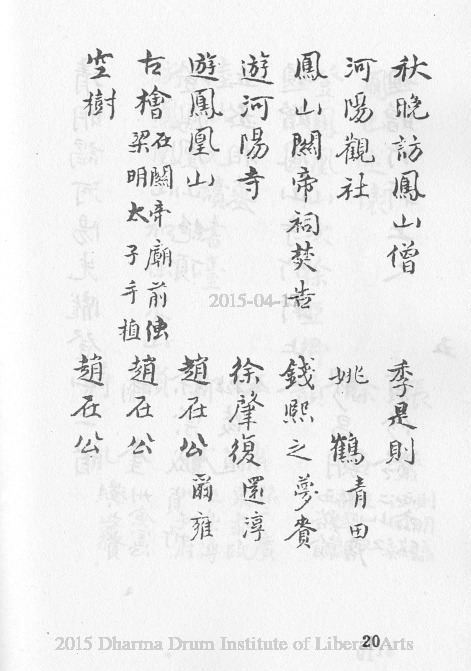 秋晚訪鳳山僧 季是則
河陽觀社 姚鶴青田
鳳山關帝祠焚告 錢熙之夢賚
遊河陽寺 徐肇復還淳
遊鳳凰山 趙在公爾雍
古檜在關帝廟前傳梁明太子手植 趙在公
空樹 趙在公
2015-04-1
20
2015 Dharma Drum Institute of Liberal Arts